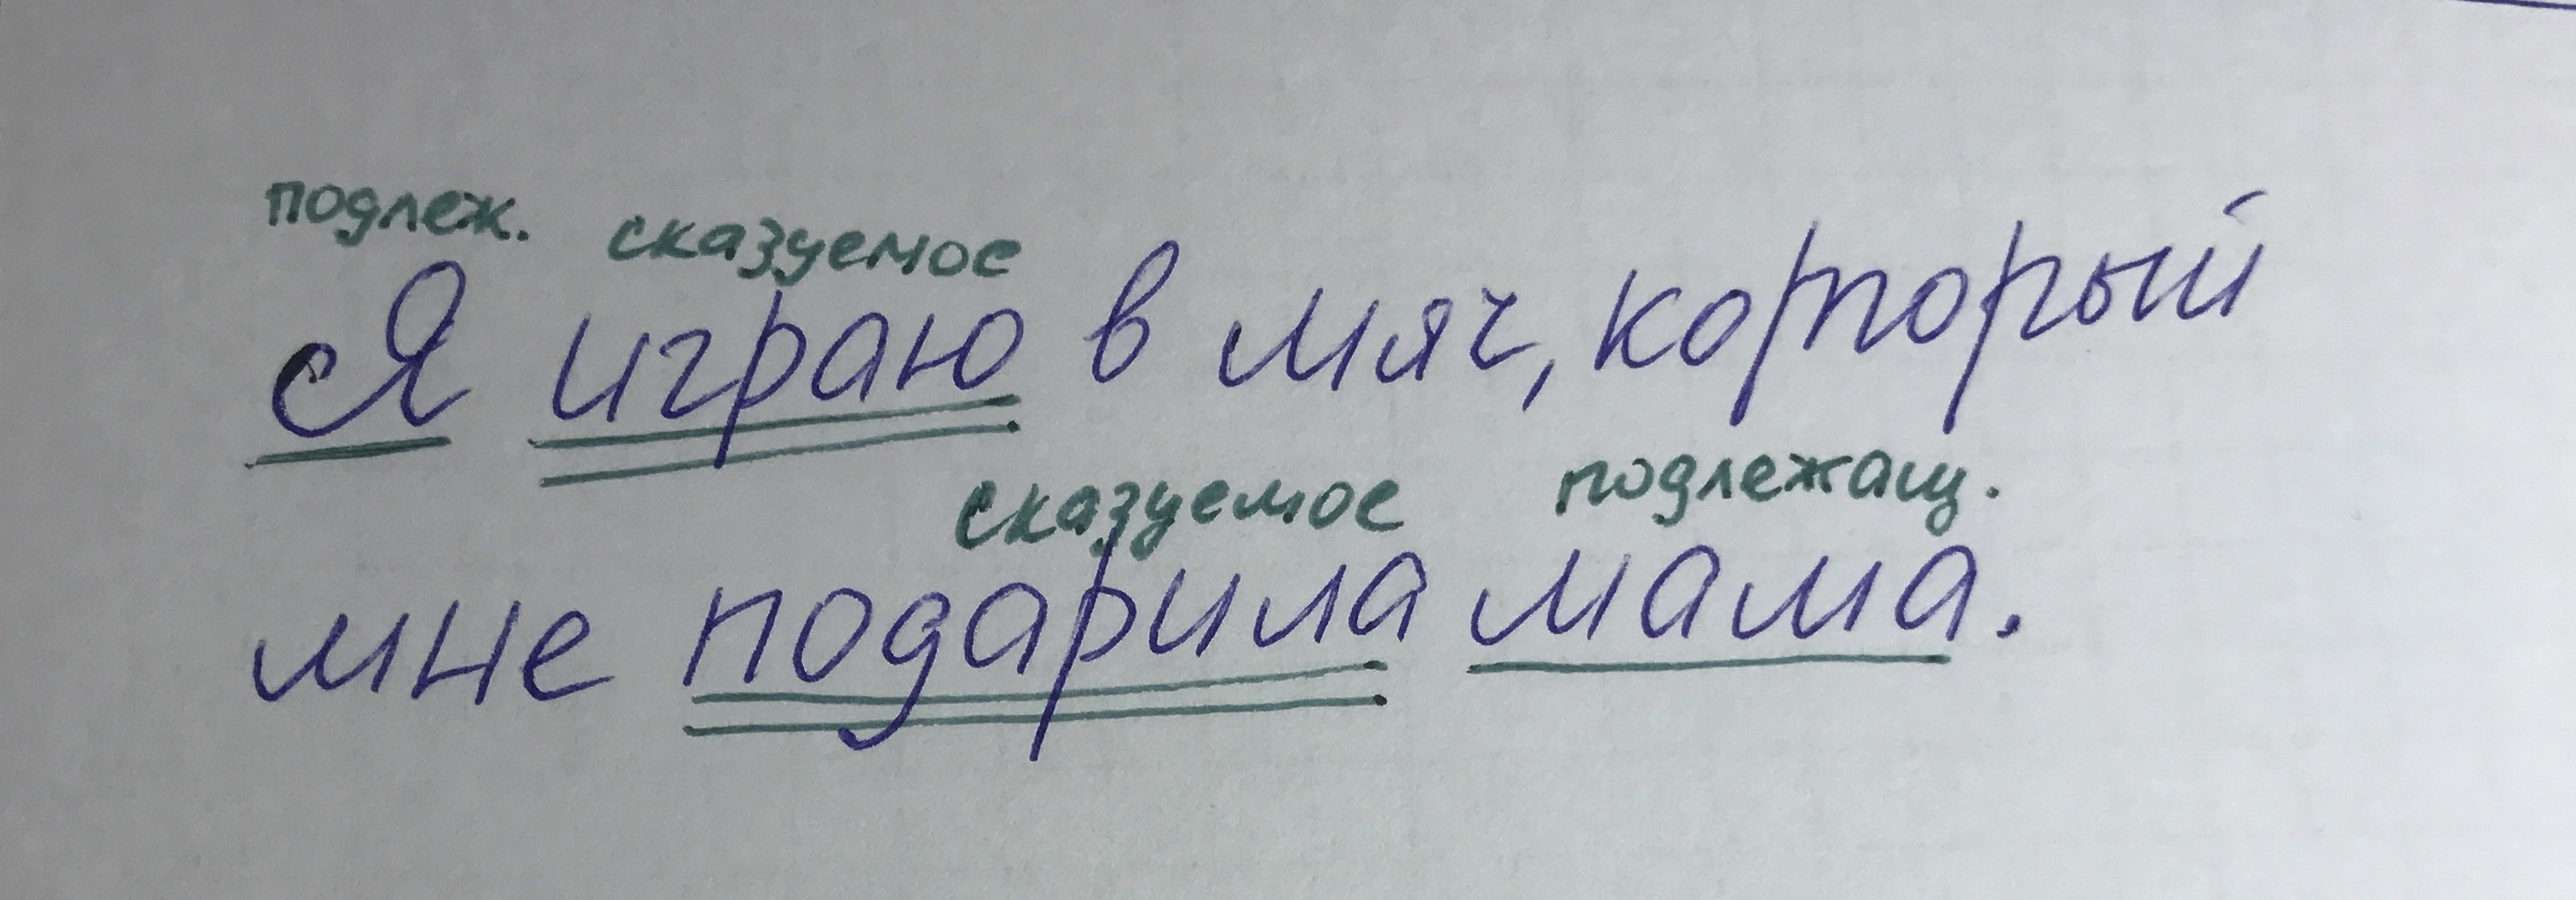 подлеж. сказуемое
Я играю в мяч, который
сказуемое подлежащ.
мне подарила мама.